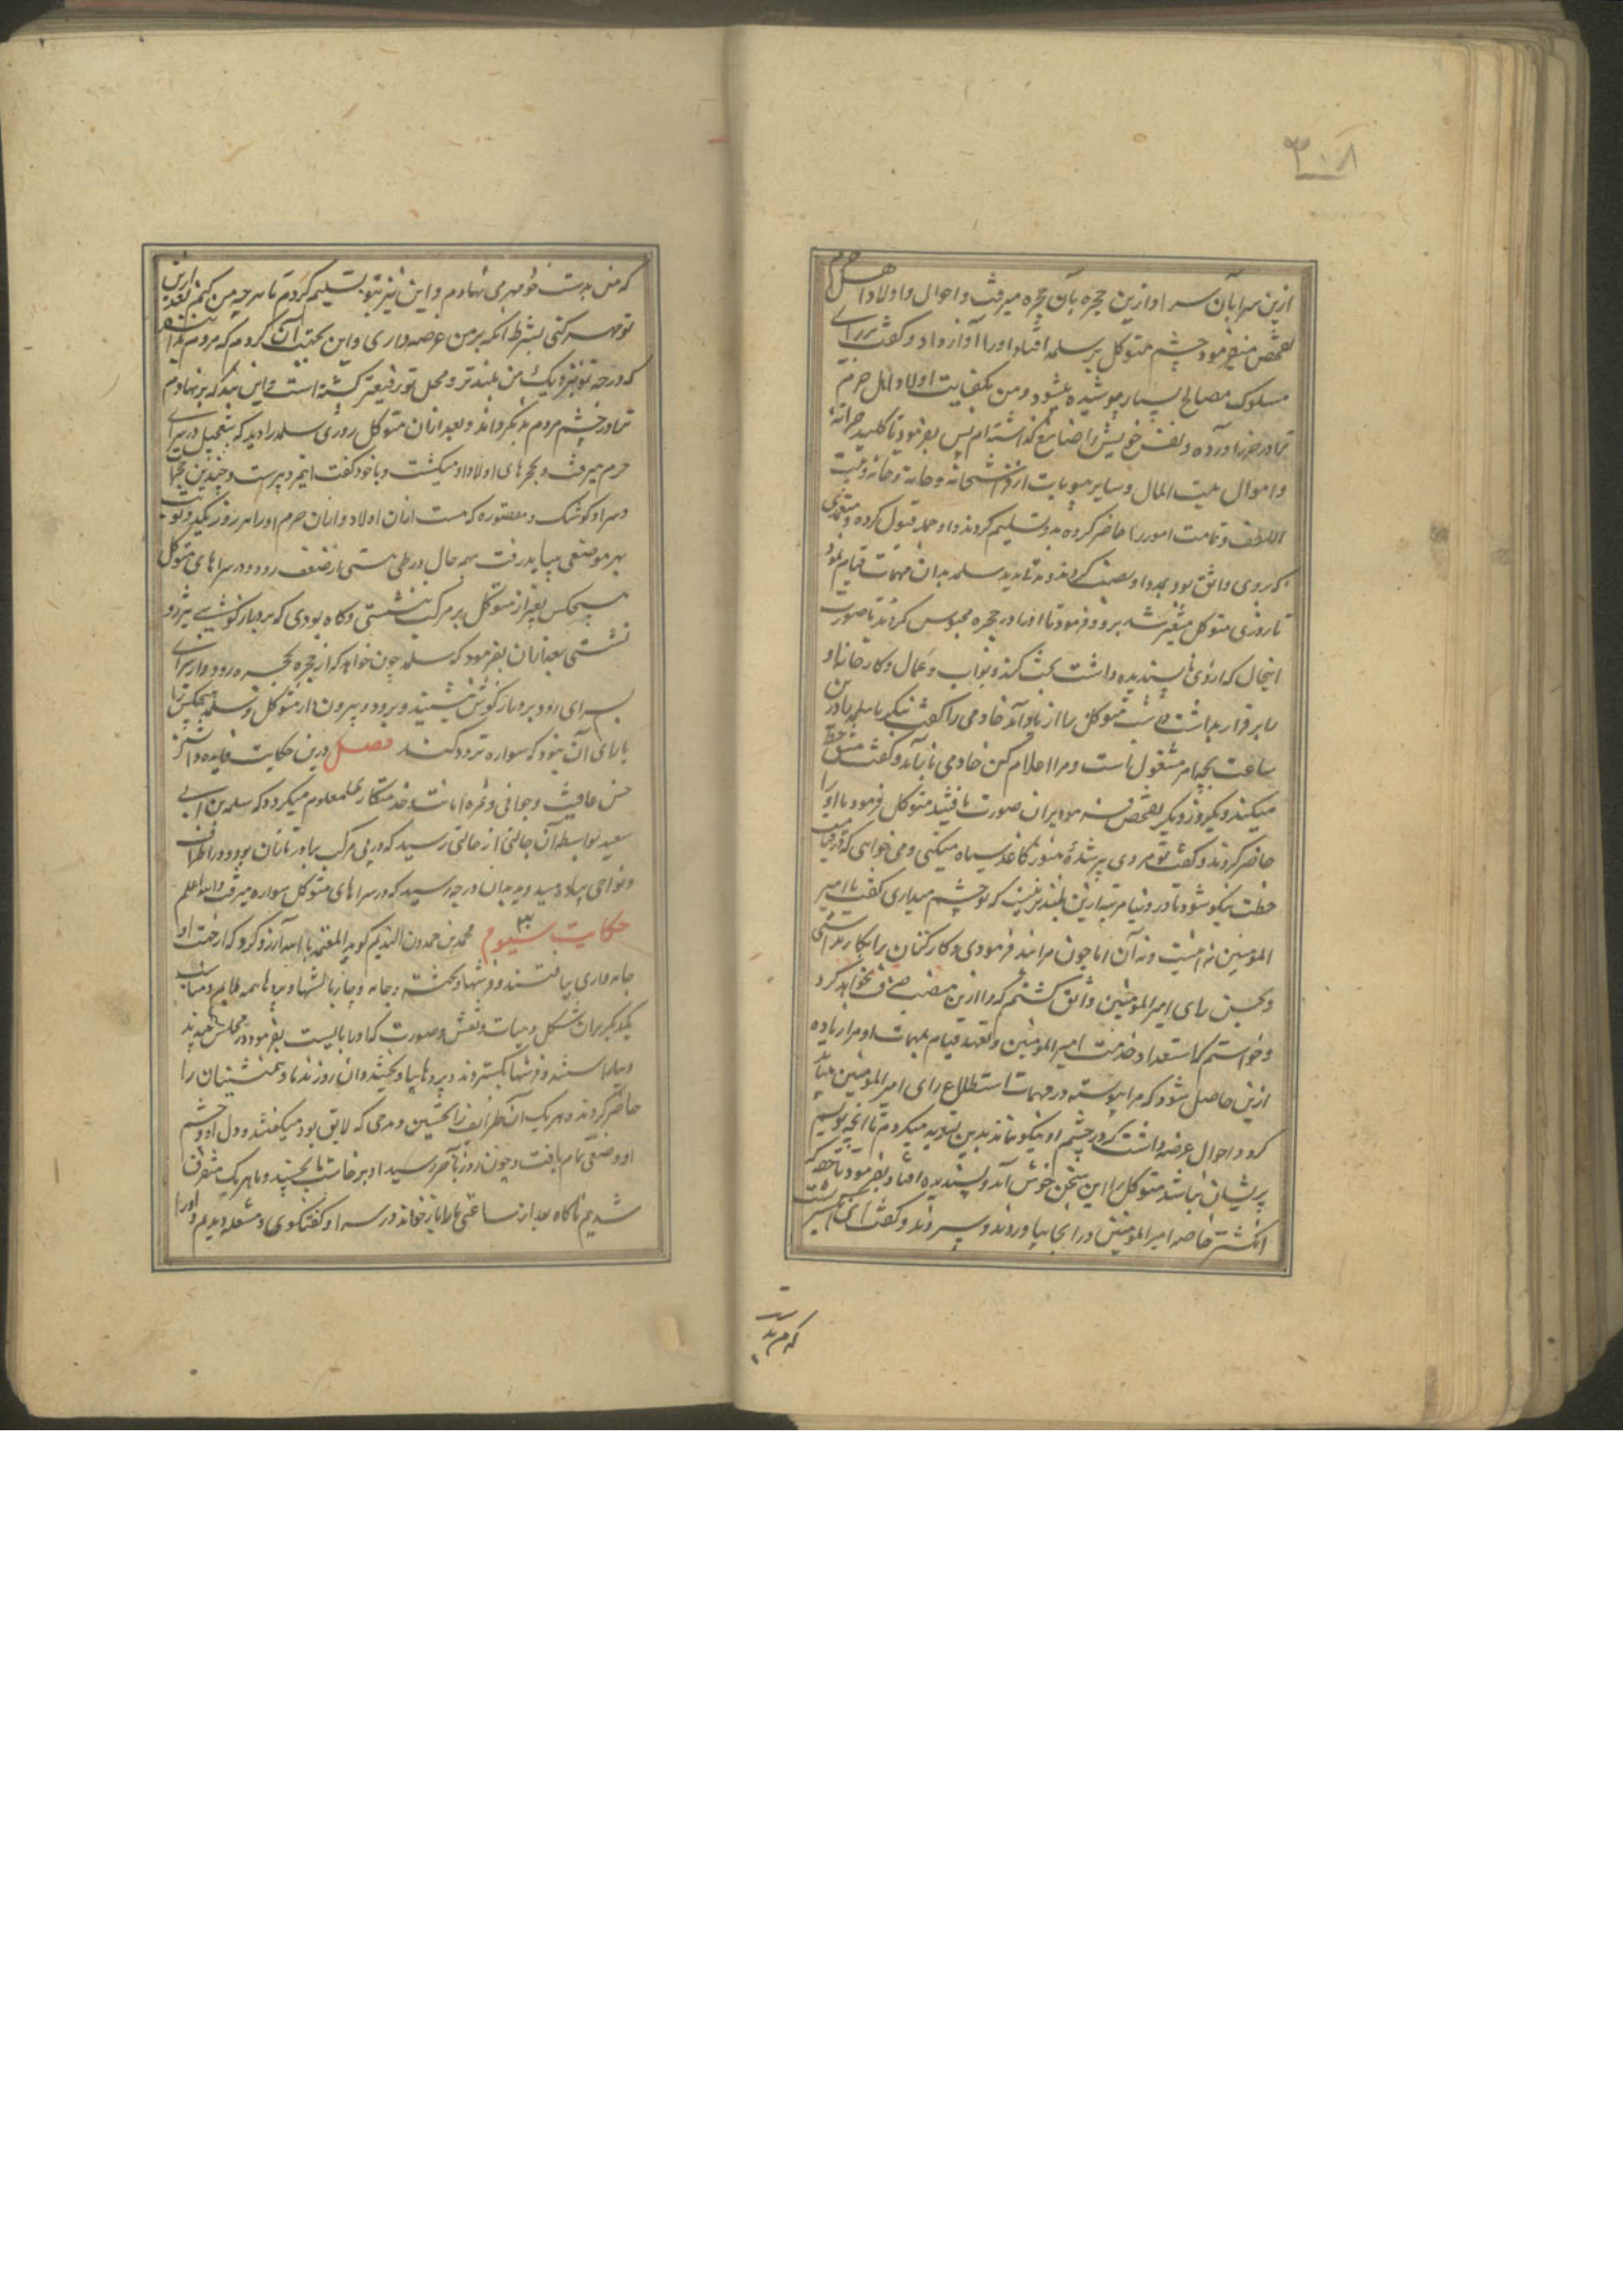 ۳۰۸
ازین سرا بآن سرا و ازین حجره بآن حجره میرفت و احوال و اولاد اهل حرم
تفحص میفرمود چشم متوکل بر سلمه افتاد او را آواز داد و گفت برای
مسلوک مصالح بسیار پوشیده میشود و من بکفایت اولاد و اهل حرم
ترا در رنج آورده و نفس خویش را ضایع گذاشته‌ام پس بفرمود تا کلید خزانه
و اموال بیت المال و سایر مهمات از فراشخانه و جامه خانه و
و تمامت امور را حاضر کرده بدو تسلیم کردند و او جمله قبول کرده و معتمدی
که بروی واثق بود بدو داد و کردند تا بدید سلمه بدان مهمات قیام نمود
تا روزی متوکل متغیر شد برو و فرمود تا او را در حجره محبوس کردند تا صورت
اینحال که از وی ناپسندیده داشت بحث کند و نواب و عمال و کارخانه او
را برقرار بداشت شب متوکل را از یاد آمد خادمی را گفت بنگر تا سلمه درین
ساعت بچه امر مشغول است و مرا اعلام کن خادمی باز آمد و گفت مشق خط
میکند و یکروز دیگر تفحص فرمود بر آن صورت یافتند متوکل فرمود تا او را
حاضر کردند و گفت تو مردی پیر شدهٔ هنوز کاغذ سیاه میکنی و می‌خواهی که
خطت نیکو شود تا در دنیا مرتبه ازین بلندتر نیست که تو چشم میداری گفت یا امیر
المؤمنین نه اینست و نه آن اما چون مرا بند فرمودی و کارکنان را بکار بداشتی
و بحسن رای امیرالمؤمنین واثق گشتم که مرا ازین منصب صرف نخواهد کرد
و خواستم که استعداد خدمت امیرالمؤمنین و تعهد قیام بمهمات او مرا زیاده
ازین حاصل شود که مرا پیوسته در مهمات استطلاع رای امیرالمؤمنین بباید
کرد و احوال عرضه داشت که در چشم او نیکو نماید بدین تسوید میکردم تا آنچه نویسم
پریشان نباشد متوکل را این سخن خوش آمد و پسندیده افتاد بفرمود تا
انگشتر خاصه امیرالمؤمنین در آنجا بیاوردند و بسپردند و گفت این انگشتریست
که من بدست
که من بدست خود مهر می‌نهادم و این نیز بتو تسلیم کردم تا هرچه من کنم بعد ازین
تو مهر کنی بشرط آنکه بر من عرضه داری و این بجهت آن کردم که مردم بدانند
که درجه تو نزدیک من بلندتر و محل تو رفیعتر گشته است و این بند که بر نهادم
ترا در چشم مردم بد نگرداند و بعد از آن متوکل روزی سلمه را دید که بتعجیل در سرای
حرم میرفت و بحجرهای اولاد او میگشت و با خود گفت این مرد پیرست و چندین حجرها
و سرا و کوشک و مقصوره که هست از آن اولاد و از آن حرم او را هر روز یکدو نوبت
بهر موضعی میباید رفت بهمه حال در طی مسی از ضعف رود و در سراهای متوکل
هیچکس بغیر از متوکل بر مرکب ننشستی و گاه بودی که بر درازگوشی نیز
نشستی بعد از آن بفرمود که سلمه چون خواهد که از حجره بحجره رود و از سرای
بسرای رود بر درازگوش نشیند و برود و بیرون از متوکل و سلمه هیچکس را
یارای آن نبود که سواره تردد کند فصل درین حکایت فایده و اثر
حسن عاقبت و جوانی و ثمره امانت و خدمتکاری معلوم میگردد که سلمه بن ابی
سعید بواسطه آن حالتی از حالتی رسید که در پی مرکب تازان بود و در اطراف
و نواحی پیاده میدوید بدان درجه رسید که در سراهای متوکل سواره میرفت والله اعلم
حکایت سیوم محمد بن حمدون الندیم گوید المعتمد بالله آرزو کرد که از جهت او
جامه داری ببافتند و فرشها و جامه و چاربالشها و پردها همه ملایم و مناسب
یکدیگر بر آن شکل و هیأت و نقش و صورت که او را بایست بفرمود در مجلس نهادند
و بیاراستند و فرشها بگستردند و پردها بیاویختند و آن روز ندما و همنشینان را
حاضر کردند و هر یک آن طرایف را تحسین و مدحی که لایق بود میگفتند و دل او و چشم
او وضعی تمام یافت و چون روز بآخر رسید او برخاست تا بخسپد و ما هر یک متفرق
شدیم ناگاه بعد از ساعتی ما را باز خواند در سرا و گفتگوی و مشعله دیدم و او را